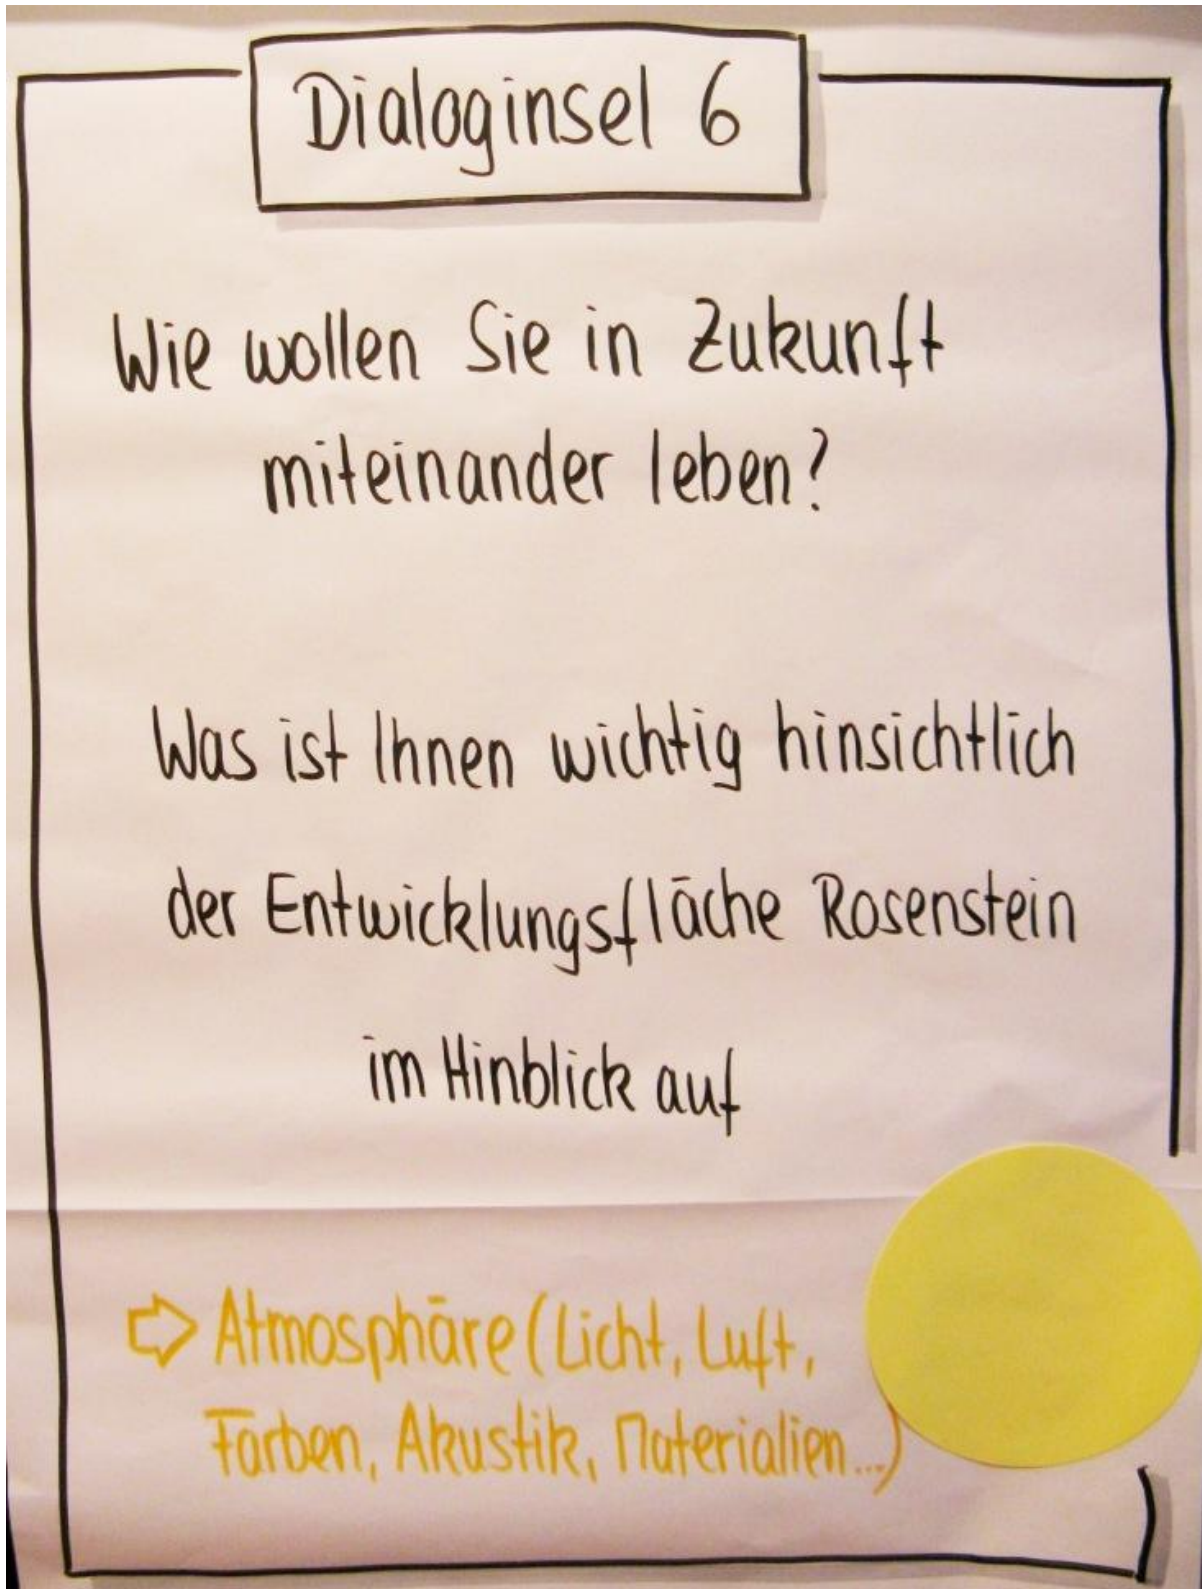 Dialoginsel 6
Wie wollen Sie in Zukunft
miteinander leben?
Was ist Ihnen wichtig hinsichtlich
der Entwicklungsfläche Rosenstein
im Hinblick auf
⇨ Atmosphäre (Licht, Luft,
Farben, Akustik, Materialien...)